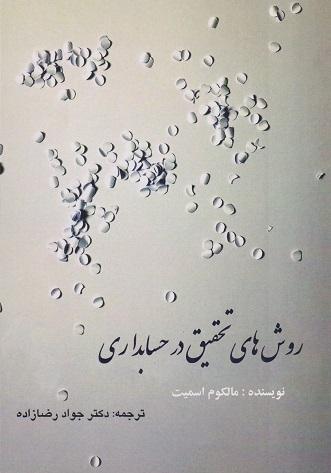 روش های تحقیق در حسابداری
نویسنده : مالکوم اسمیت
ترجمه: دکتر جواد رضازاده